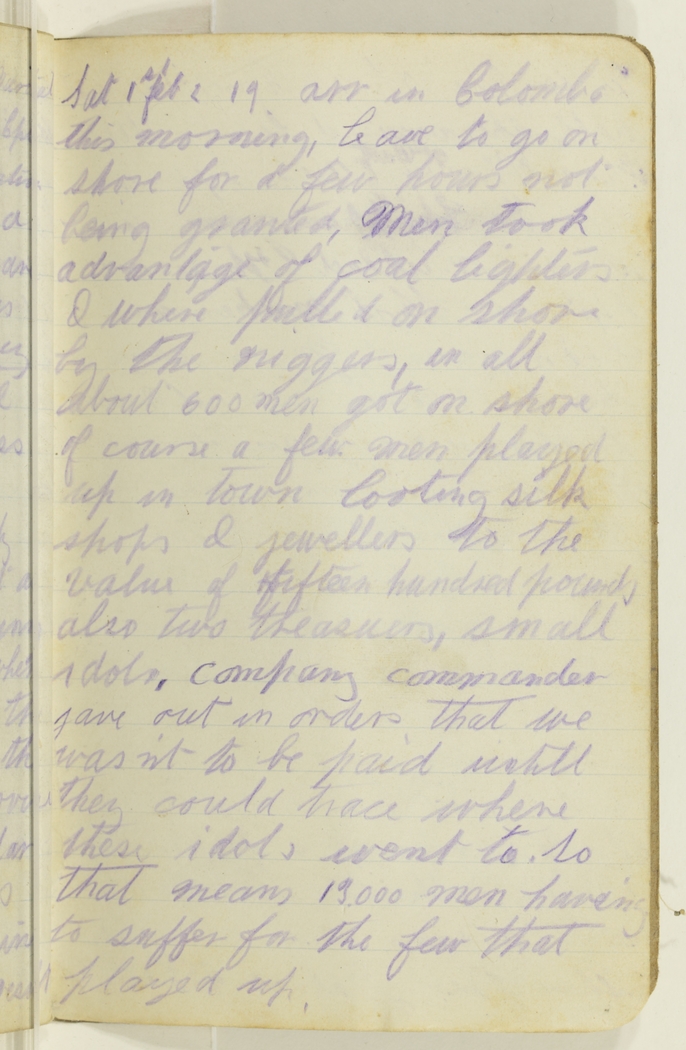 Sat 1st Feb 19 arr in Colombo
this morning, leave to go on
shore for a few hours not
being granted, Men took
advantage of coal lighters
& where pulled on shore
by the niggers, in all
about 600 men got on shore
of course a few men played
up in town looting silk
shops & jewellers to the
value of fifteen hundred pounds
also two treasuers, small
idols, company commander
gave out in orders that we
wasnt to be paid untill
they could trace where
these idols went to. So
that means 13,000 men having
to suffer for the few that
played up.